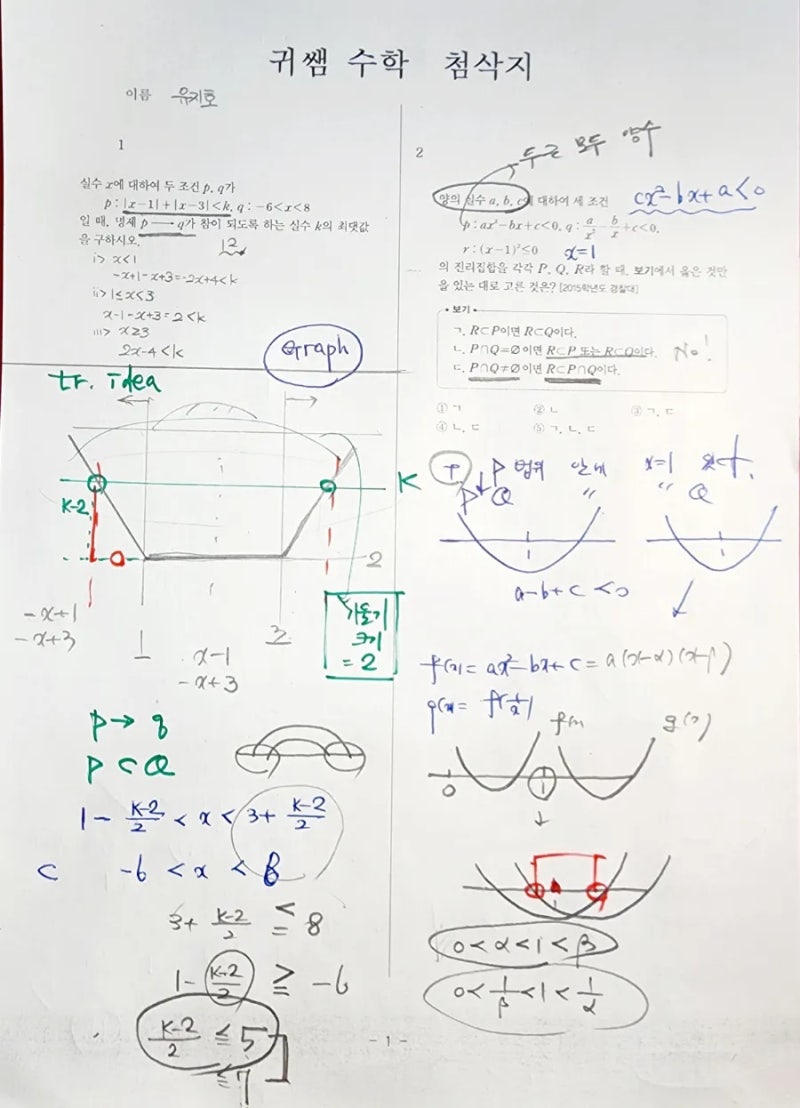 귀쌤 수학 첨삭지
이름 유지호
1
실수 x에 대하여 두 조건 p, q가
p : |x-1|+|x-3|<k, q : -6<x<8
일 때, 명제 p → q가 참이 되도록 하는 실수 k의 최댓값
을 구하시오.
12
i> x<1
-x+1-x+3=-2x+4<k
ii> 1≤x<3
x-1-x+3=2<k
iii> x≥3
2x-4<k
Graph
tr. idea
K
K-2
2
-x+1
-x+3
1
x-1
-x+3
3
기울기
크기
=2
p→q
P⊂Q
1- K-2/2 < x < 3+ K-2/2
⊂ -6 < x < 8
3+ K-2/2 ≤ 8
1- K-2/2 ≥ -6
K-2/2 ≤ 5
≤ 7
2
두근 모두 양수
양의 실수 a, b, c에 대하여 세 조건
cx²-bx+a<0
p : ax²-bx+c<0, q : a/x² - b/x + c<0,
r : (x-1)²≤0
x=1
의 진리집합을 각각 P, Q, R라 할 때, 보기에서 옳은 것만
을 있는 대로 고른 것은? [2015학년도 경찰대]
보기
ㄱ. R⊂P이면 R⊂Q이다.
ㄴ. P∩Q=∅이면 R⊂P 또는 R⊂Q이다.
No!
ㄷ. P∩Q≠∅이면 R⊂P∩Q이다.
① ㄱ ② ㄴ ③ ㄱ, ㄷ
④ ㄴ, ㄷ ⑤ ㄱ, ㄴ, ㄷ
P 범위 안에 x=1
P Q 〃 〃 Q
a-b+c<0
f(x)= ax²-bx+c = a(x-α)(x-β)
g(x)= f(1/x)
f(x) g(x)
0 1
0<α<1<β
0<1/β<1<1/α
- 1 -